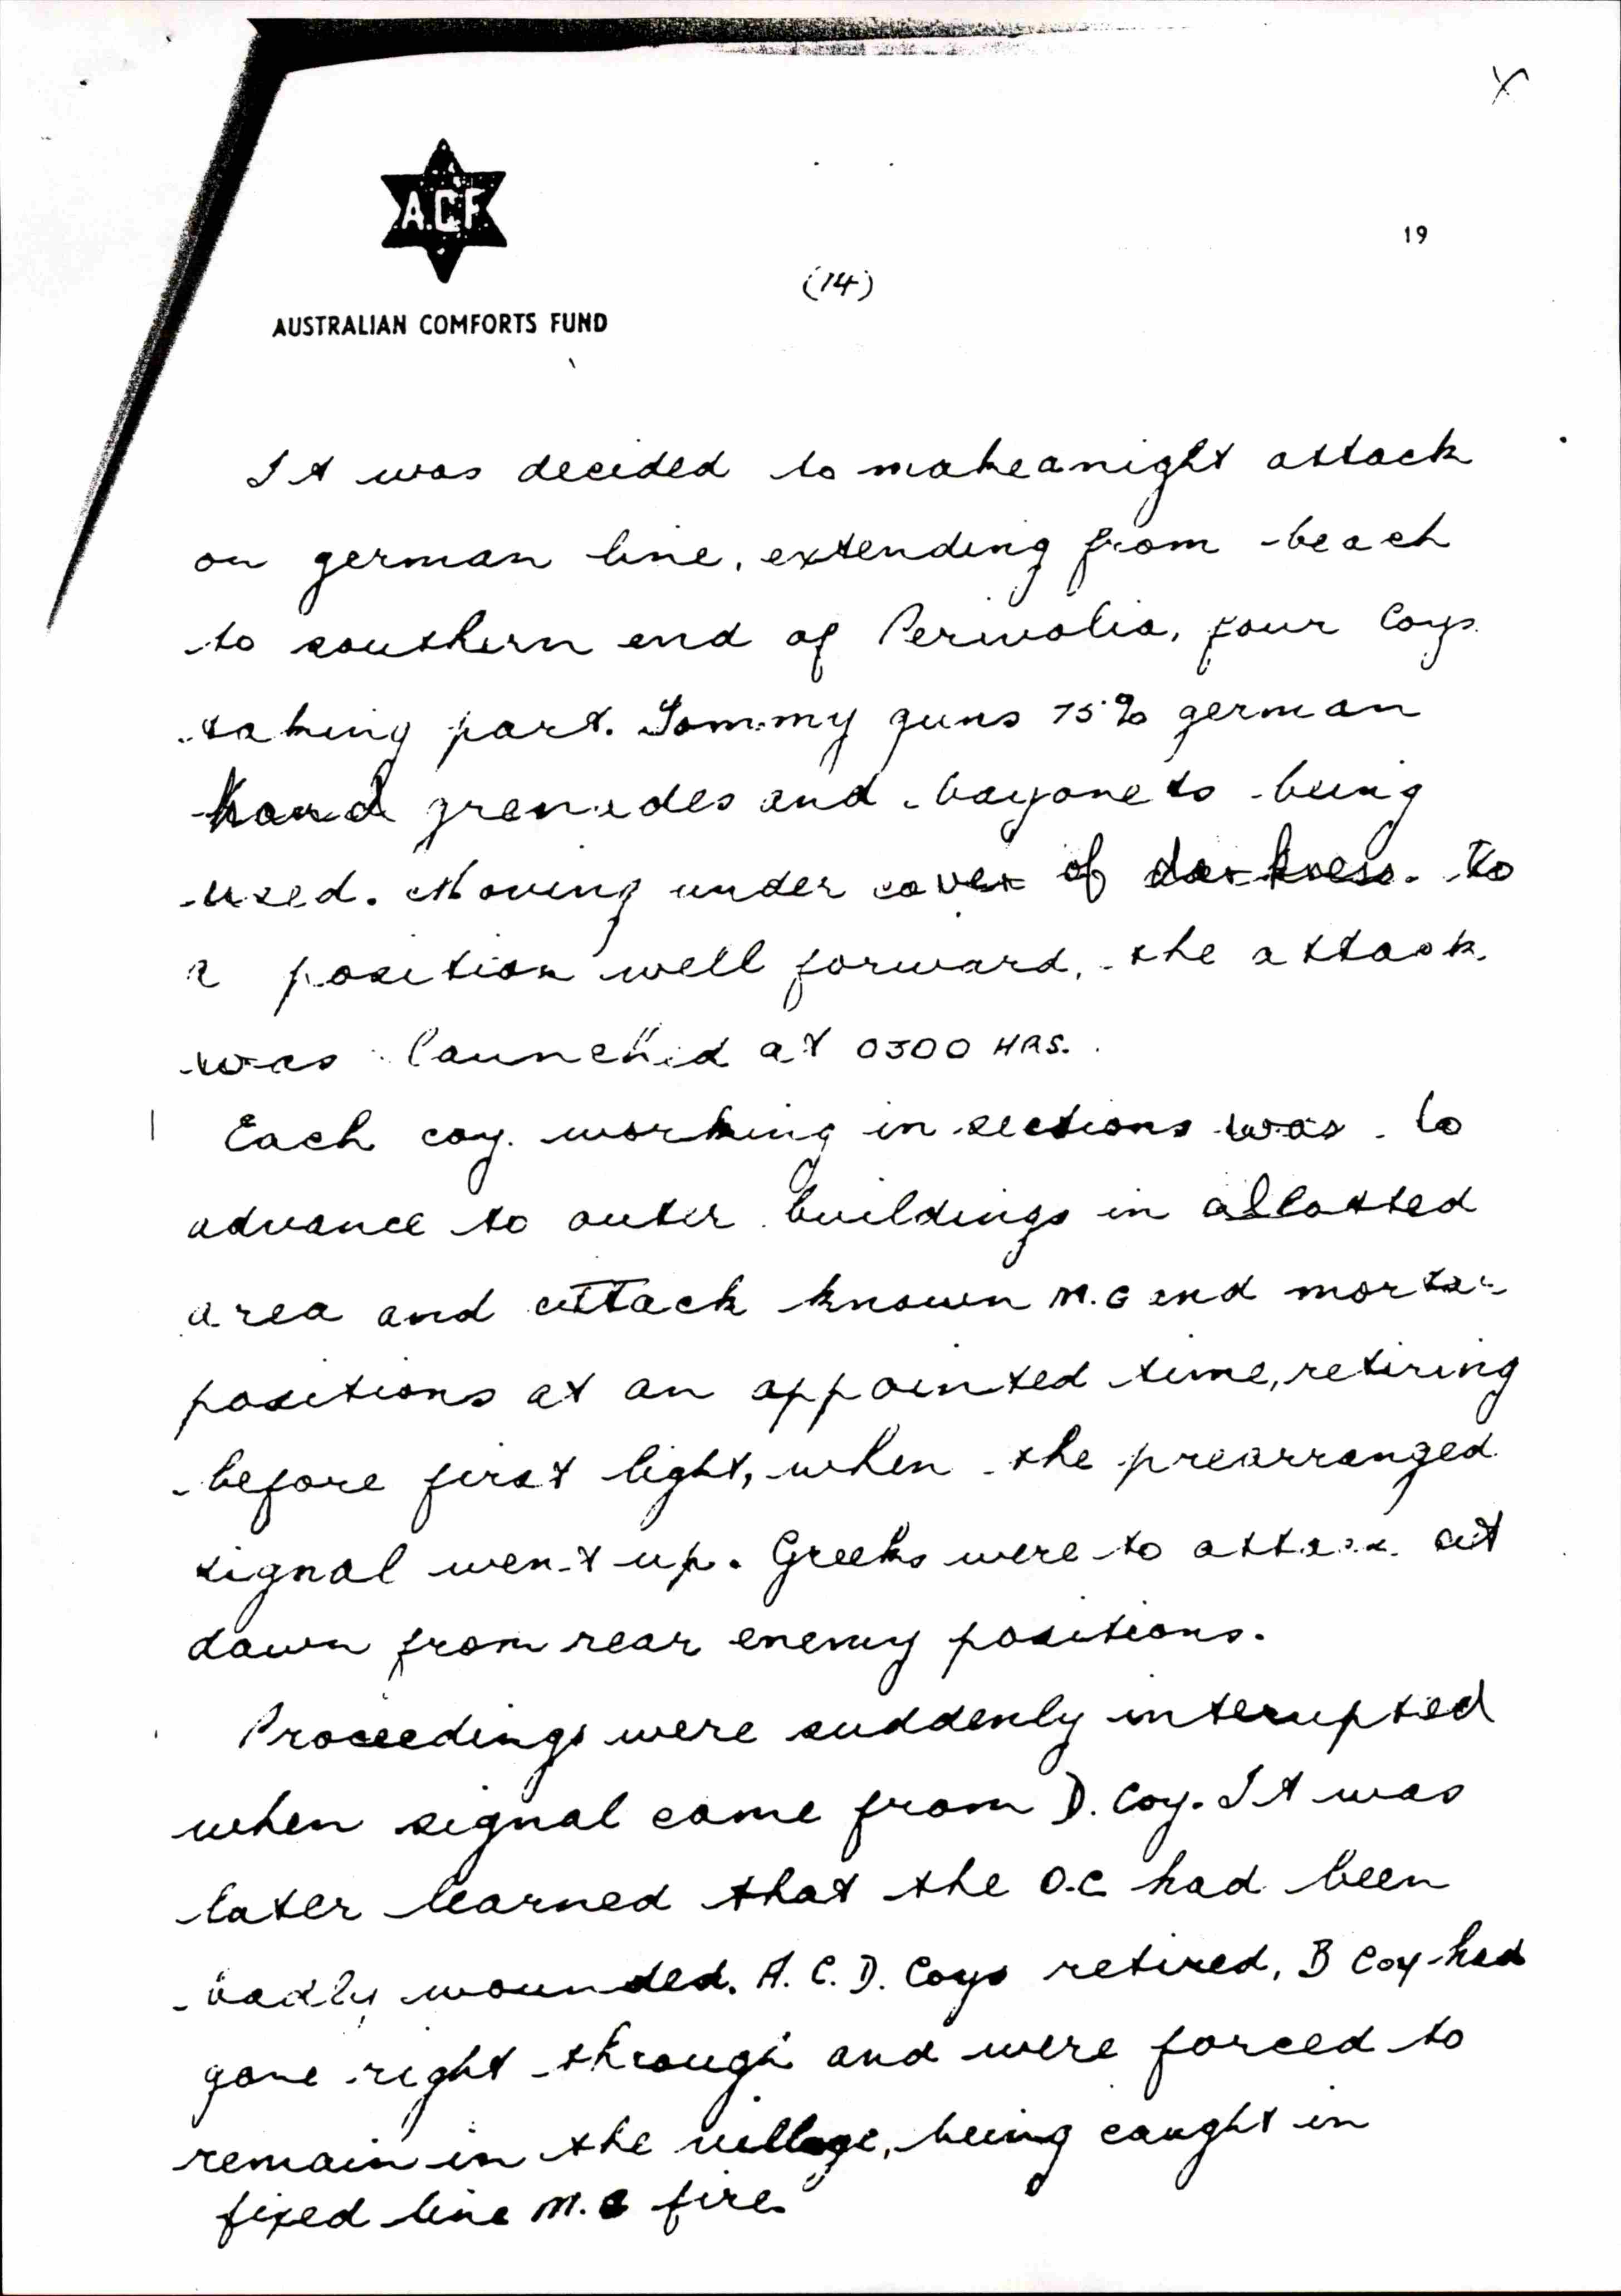 A.C.F.
AUSTRALIAN COMFORTS FUND
(14)
19
It was decided to make a night attack
on german line, extending from beach
to southern end of Perivolia, four Coys.
taking part. Tommy guns 75% german
hand grenades and bayonets being
used. Moving under cover of darkness to
a position well forward, the attack
was launched at 0300 HRS.
Each coy. working in sections was to
advance to outer buildings in allotted
area and attack known M.G and mortar
positions at an appointed time, retiring
before first light, when the prearranged
signal went up. Greeks were to attack at
dawn from rear enemy positions.
Proceedings were suddenly interupted
when signal came from D. Coy. It was
later learned that the O.C had been
badly wounded. A. C. D. Coys retired, B Coy had
gone right through and were forced to
remain in the village, being caught in
fixed line M.G fire.